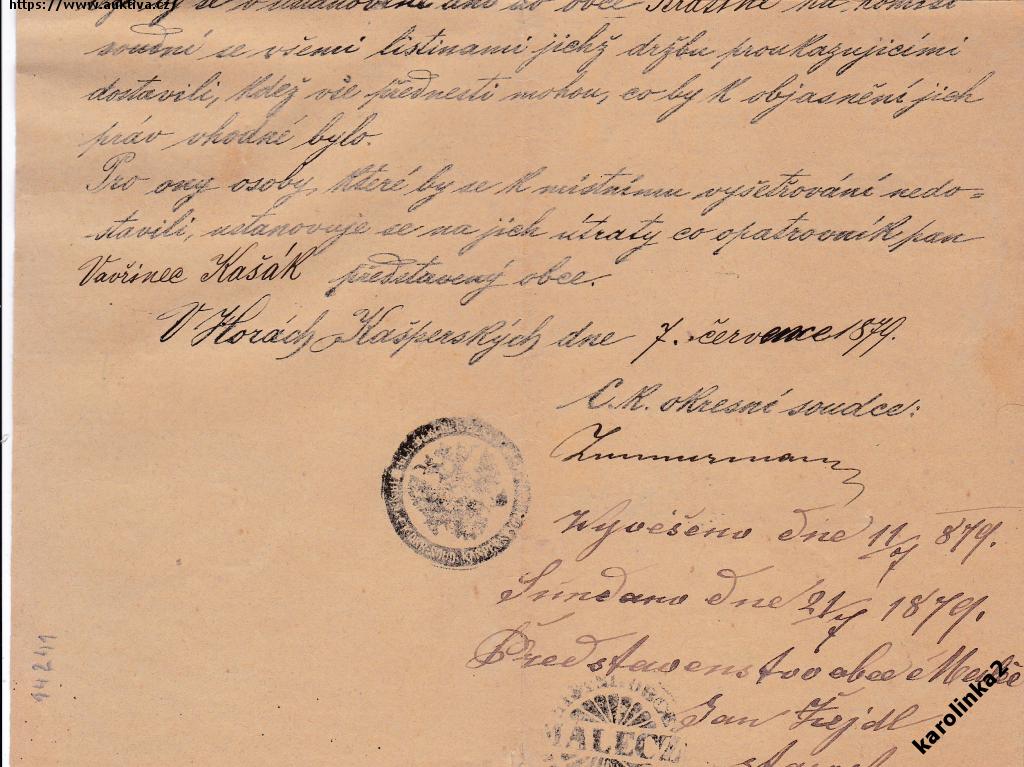 https://www.auktiva.cz
se v ustanovené dni do obce na komisi
soudní se všemi listinami jichž držbu proukazujícími
dostavili, kdež vše přednesti mohou, co by k objasnění jich
práv vhodné bylo.
Pro ony osoby, které by se k místnímu vyšetřování nedo=
stavili, ustanovuje se na jich útraty co opatrovník pan
Vavřinec Kašák představený obce.
V Horách Kašperských dne 7. července 1879.
C. k. okresní soudce:
Zimmermann
Wyvěšeno dne 11/7 879.
Sundano dne 21/7 1879.
Představenstvo obce
Jan
JALECZ
14241
karolinka2